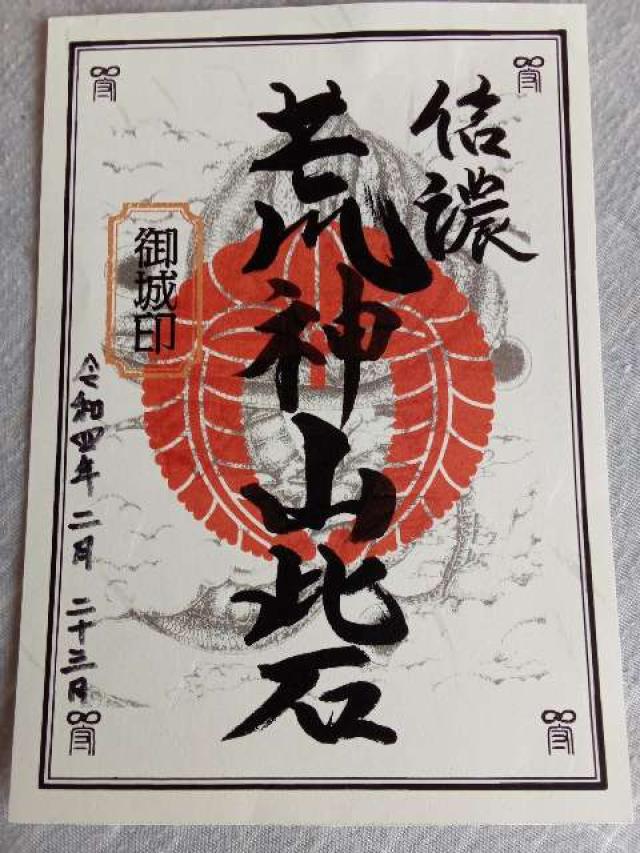 信濃
荒神山砦
御城印
令和四年二月二十三日